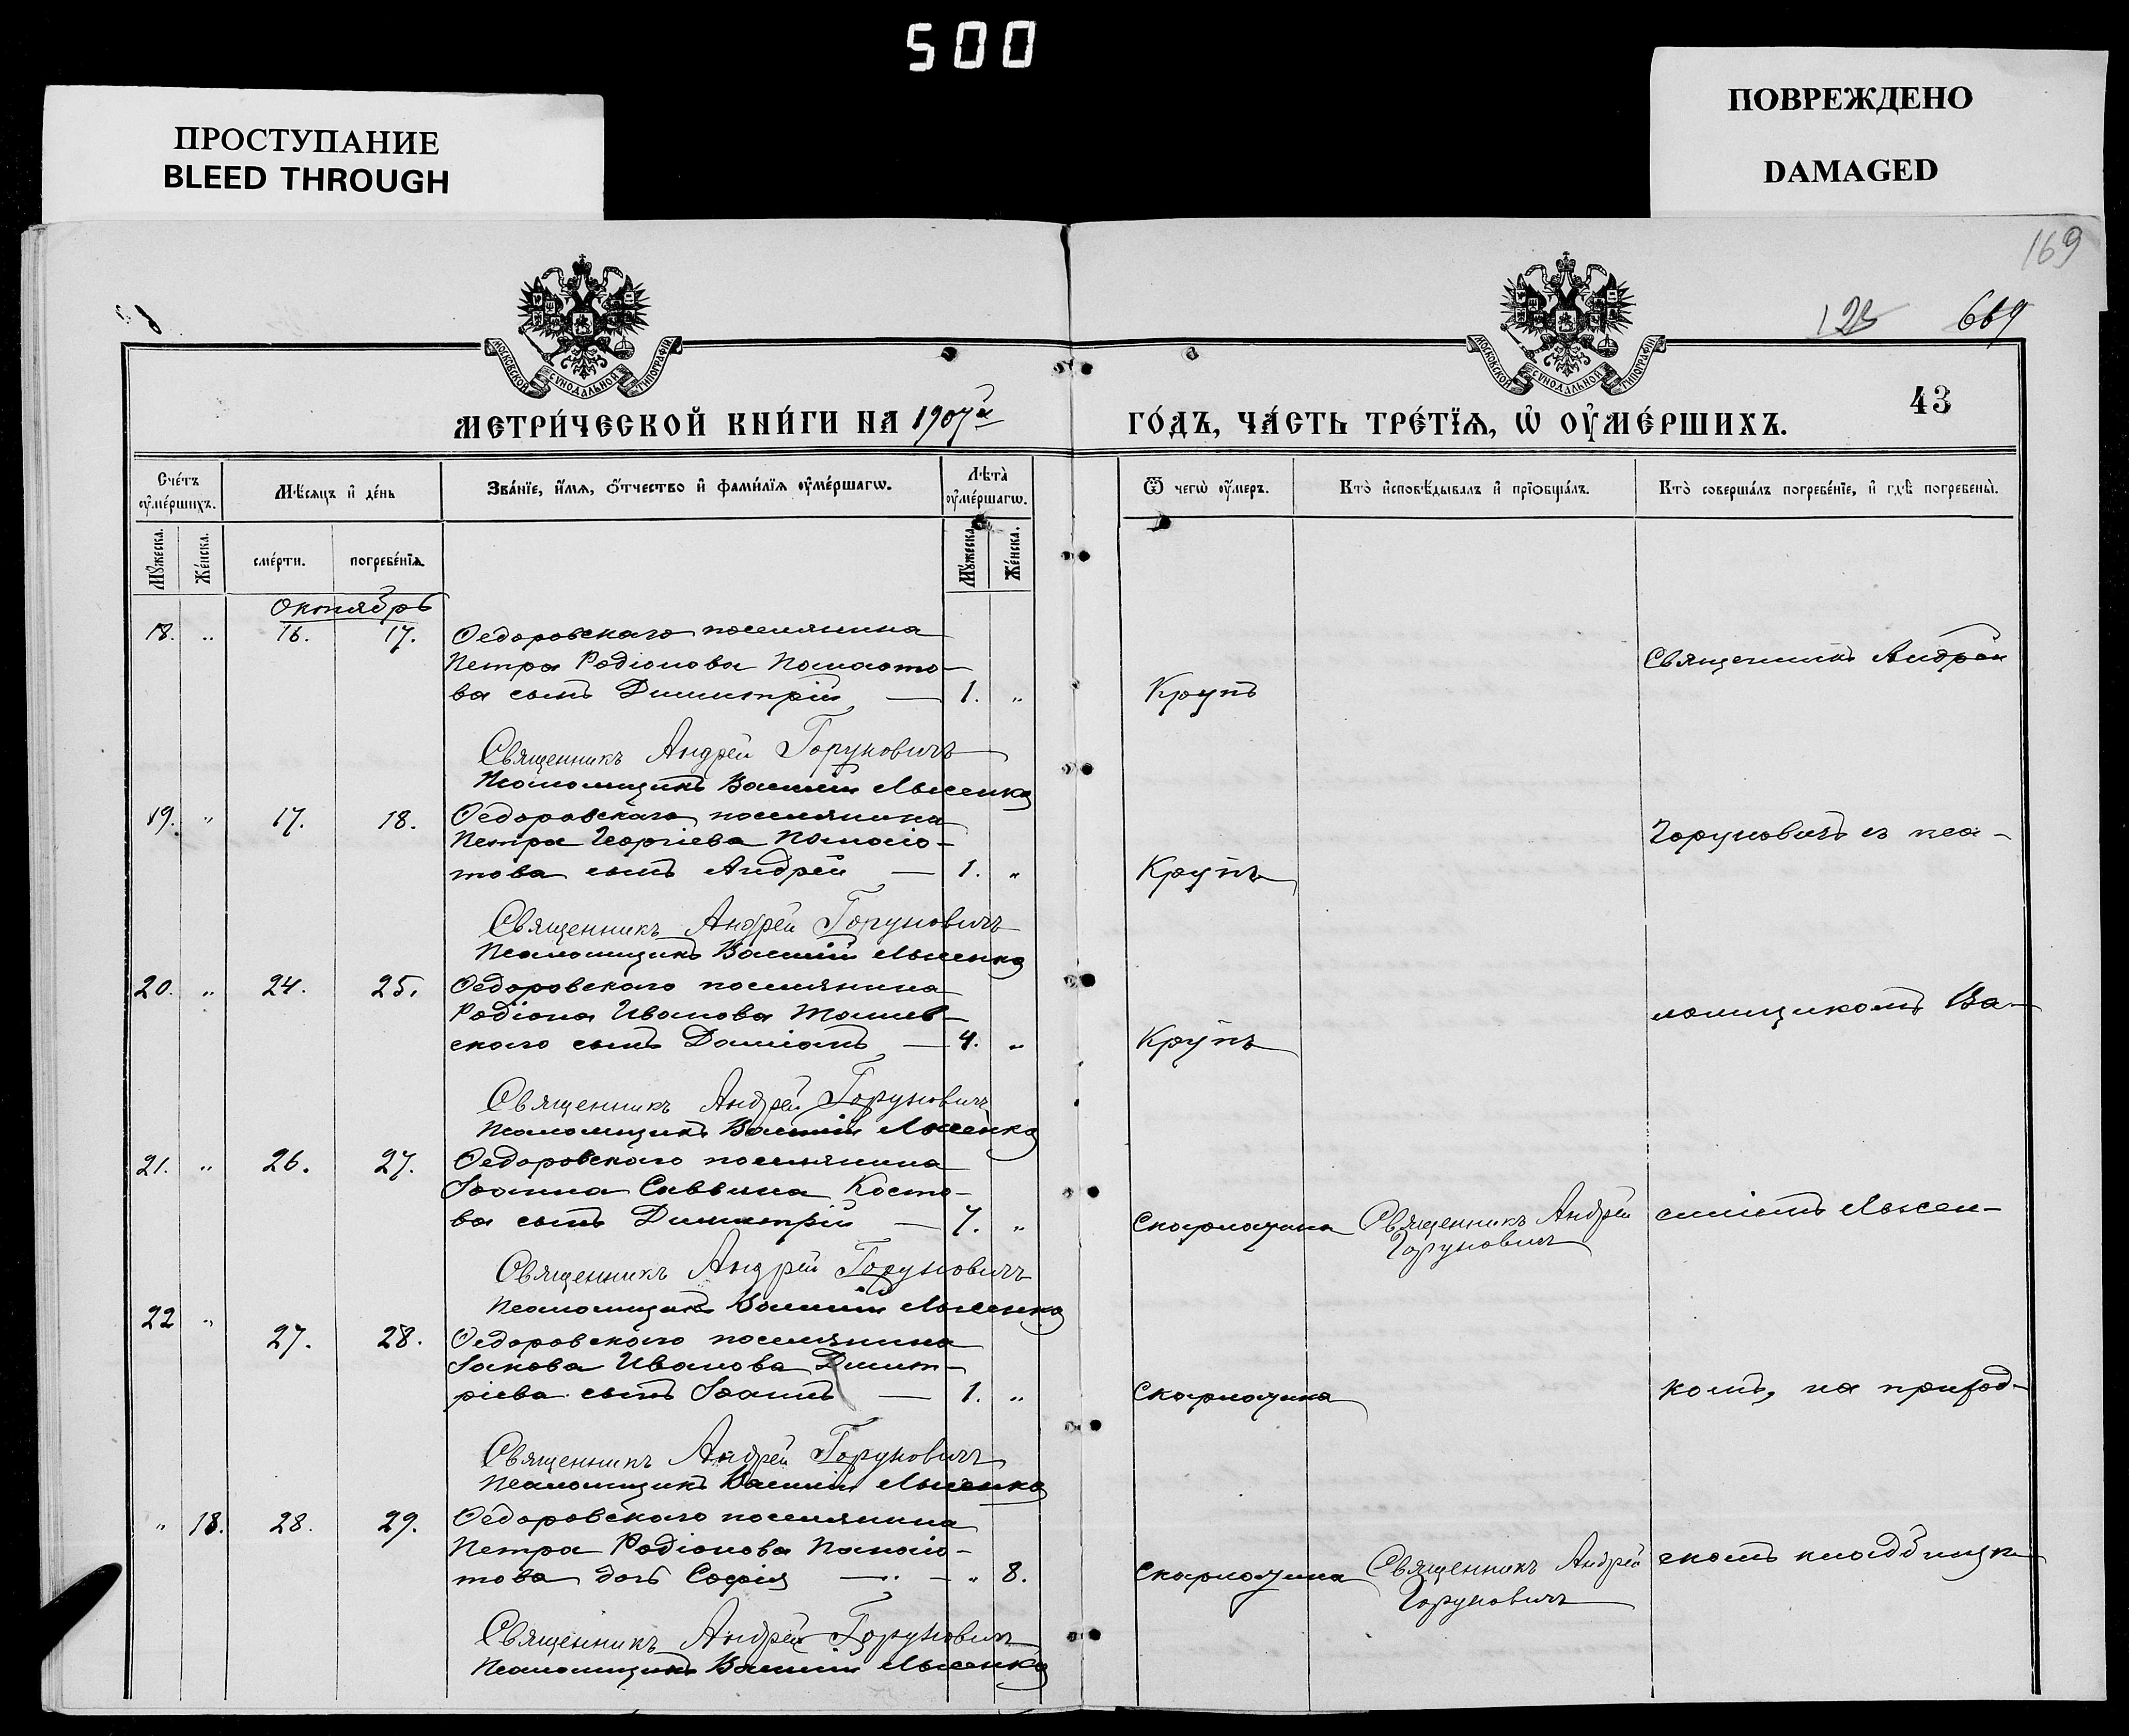 500
ПРОСТУПАНИЕ
BLEED THROUGH
ПОВРЕЖДЕНО
DAMAGED
169
123 669
43
МОСКОВСКОЙ СѴНОДАЛЬНОЙ ТИПОГРАФІИ
МОСКОВСКОЙ СѴНОДАЛЬНОЙ ТИПОГРАФІИ
МЕТРИ́ЧЕСКОЙ КНИ́ГИ НА 1907й ГО́ДЪ, ЧА́СТЬ ТРЕ́ТЇѦ, Ѡ҆ ОУ҆МЕ́РШИХЪ.
Сче́тъ оу҆ме́ршихъ.
Мѣсѧцъ и҆ де́нь
Зва́нїе, и҆́мѧ, ѻ҆́тчество и҆ фами́лїѧ оу҆ме́ршагѡ.
Лѣта̀ оу҆ме́ршагѡ.
Ѿ чегѡ̀ оу҆́меръ.
Кто̀ и҆сповѣ́дывалъ и҆ прїѡбща́лъ.
Кто̀ соверша́лъ погребе́нїе, и҆ гдѣ̀ погребены̀.
Мꙋ́жеска. Же́нска. сме́рти. погребе́нїѧ. Мꙋ́жеска. Же́нска.
Октябрь
18. „ 16. 17. Ѳедоровскаго поселянина
Петра Родіонова Панаото-
ва сынъ Димитрій — 1. „ Крупъ
Священникъ Андрей
Священникъ Андрей Горуновичъ
Псаломщикъ Василій Лысенко
19. „ 17. 18. Ѳедоровскаго поселянина
Петра Георгіева Панаіо-
това сынъ Андрей — 1. „ Крупъ
Горуновичъ съ пса-
Священникъ Андрей Горуновичъ
Псаломщикъ Василій Лысенко
20. „ 24. 25. Ѳедоровскаго поселянина
Родіона Иванова Ташев-
скаго сынъ Даміанъ — 4. „ Крупъ
ломщикомъ Ва-
Священникъ Андрей Горуновичъ
Псаломщикъ Василій Лысенко
21. „ 26. 27. Ѳедоровскаго поселянина
Іоанна Саввина Косто-
ва сынъ Димитрій — 7. „ Скарлатина Священникъ Андрей
Горуновичъ
силіемъ Лысен-
Священникъ Андрей Горуновичъ
Псаломщикъ Василій Лысенко
22 „ 27. 28. Ѳедоровскаго поселянина
Іакова Иванова Димит-
ріева сынъ Іоаннъ — 1. „ Скарлатина
комъ, на приход-
Священникъ Андрей Горуновичъ
Псаломщикъ Василій Лысенко
„ 18. 28. 29. Ѳедоровскаго поселянина
Петра Родіонова Панаіо-
това дочь Софія — „ 8. Скарлатина Священникъ Андрей
Горуновичъ
скомъ кладбищѣ
Священникъ Андрей Горуновичъ
Псаломщикъ Василій Лысенко